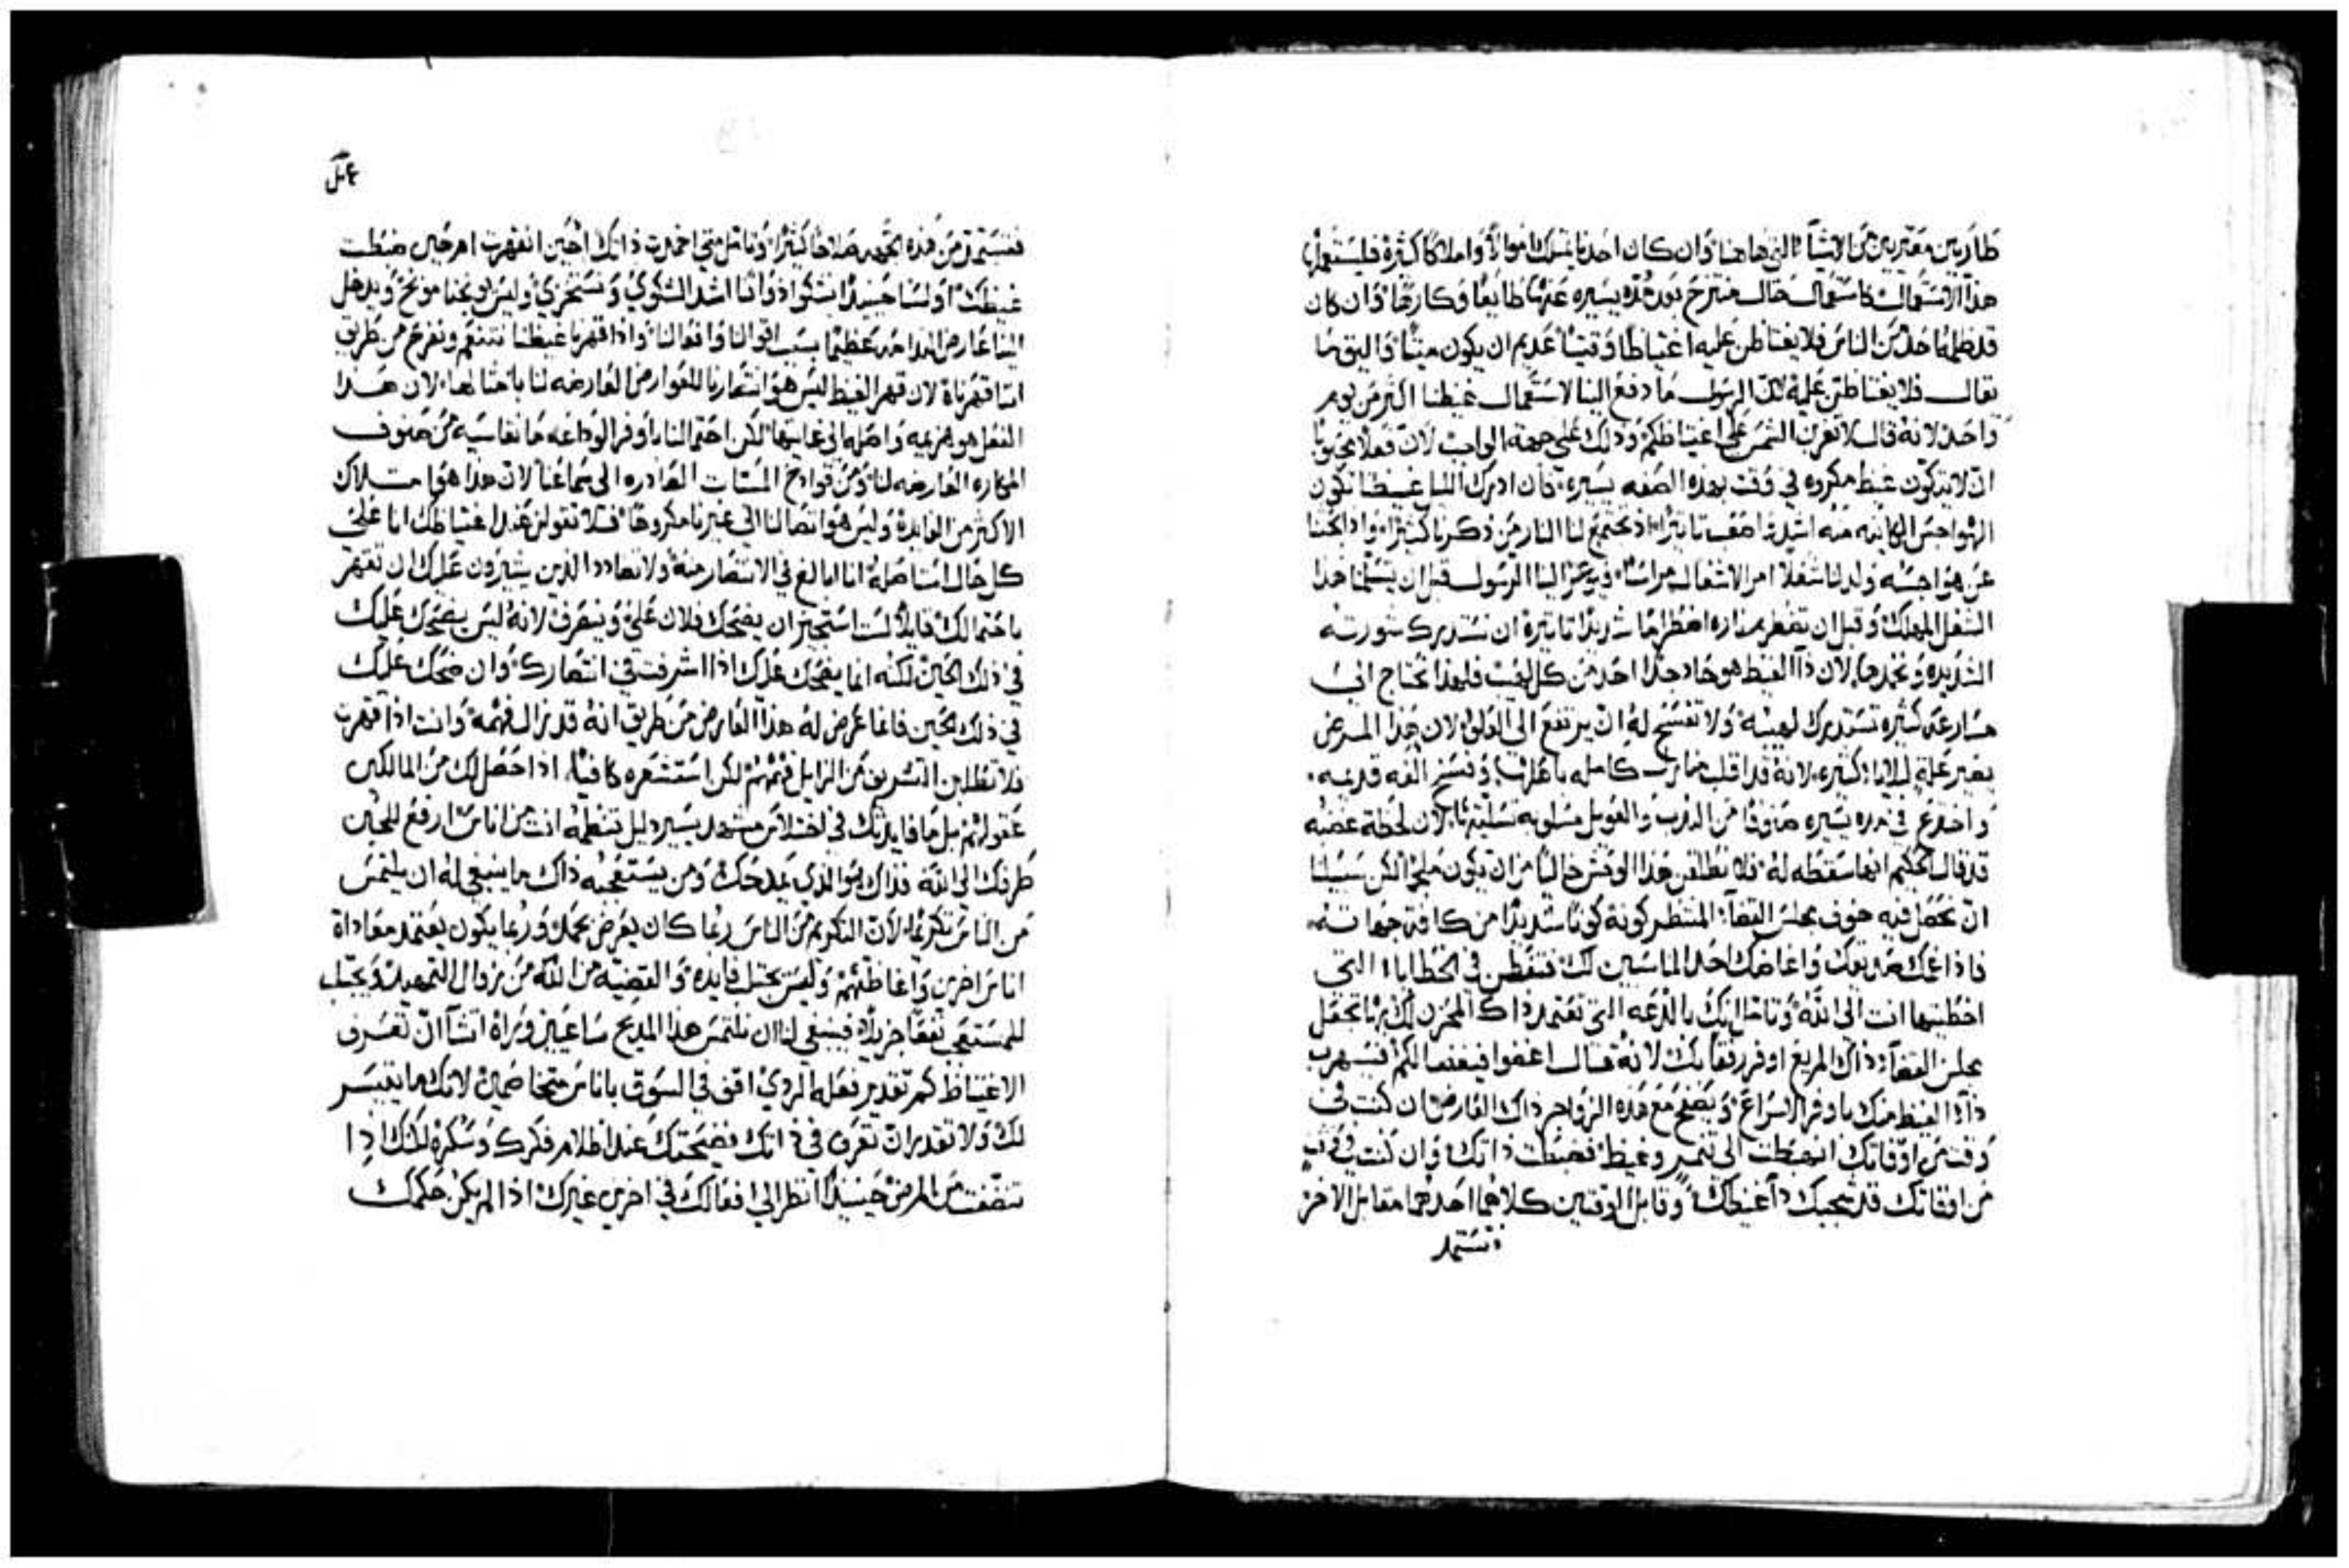 طاريين مغتربين من الاشيآ التي هاهنا وان كان احدنا يمتلك اموالاً واملاكاً كثيرة فليستعمل
هذا الاستعمال كاستعمال حال منتزح بعد مدة يسيره عنها طايعاً وكارهاً وان كان
قد ظلمنا احد من الناس فلا يغتاظن عليه اغتياظاً وقتياً عديم ان يكون ميتاً واليق ما
يقال فلا يغتاظن عليه لان الرسول ما دفع الينا لاستعمال غيظنا اكثر من يوم
واحد لانه قال لا تغرب الشمس على اغتياظكم وذلك على جهة الواجب لان فعلاً محبوباً
ان لا يتكون غيظ مكروه في وقت بهذه الصفه يسيره فان ادرك الليل غيظنا تكون
الهواجس الكاينه منه اشد اضعف تاثيراً اذ تجتمع لنا النار من ذكرنا كثيراً واذا بحثنا
عن هواجسه ولد لنا شغلاً امر الاشغال مراساً فيوعز الينا الرسول قبل ان يتسلمنا هذا
الشغل المهلك وقبل ان تضطرم ناره اضطراماً شديداً تاثيره ان نستدرك سورته
الشديده ونخمدها لان دآ الغيظ هو حاد جداً احد من كل لهيب فلهذا نحتاج الى
مسارعة كثيره تستدرك لهيبه ولا تفسح له ان يرتفع الى العلو لان هذا المرض
يصير علة لبلايا كثيره لانه قد اقلب منازل كامله باهلها وفسخ الفه قديمه
واخترع في مده يسيره صنوفاً من الندب والعويل مسلوبه تسليتها لان لحظة غضبه
قد قال الحكيم انها سقطه له فلا نطلقن هذا الوحش خالياً من ان يكون ملجماً لكن سبيلنا
ان نجعل فيه خوف مجلس القضآ المنتظر كونه كوناً شديداً من كافة جهاته
فاذا غمك صديقك واغاضك احد المناسبين لك فتفطن في الخطايا التي
اخطيتها انت الى الله وتامل انك بالدعه التي تعتمد ذاك المحزن لك بها تجعل
مجلس القضآ وذاك المريع اوفر رفقاً بك لانه قال اغفوا فيغفر لكم فسيهرب
دآ الغيظ منك باوفر الاسراع وتصلح مع هذه الزواجر ذاك العارض ان كنت في
وقت من اوقاتك انهبطت الى تنمر وغيظ فضبطت ذاتك وان كنت في وقت
من اوقاتك قد سحبك دآ غيظك وقابل الوقتين كلاهما احدهما مقابل الاخر
فتستمد
فتستمد من هذه الجهه صلاحاً كثيراً وتامل متى احمدت ذاتك احين انقهرت ام حين ضبطت
غيظك او لسنا حينيذٍ نشكوا ذواتنا اشد الشكوي ونستخزي وليس يوبخنا موبخ ويدخل
الينا عارض الندامه عظيماً بسبب اقوالنا وافعالنا واذا قهرنا غيظنا نتنعم ونفرح من طريق
اننا قهرناه لان قهر الغيظ ليس هو انتصارنا للعوارض العارضه لنا بامثالها لان هذا
الفعل هو هزيمه واصله الى غايتها لكن احتمالنا باوفر الوداعه ما نقاسيه من صنوف
المكاره العارضه لنا ومن قوادح المسبات الصادره الى سماعنا لان هذا هو امتلاك
الاكثر من الفايده وليس هو ايصالنا الى غيرنا مكروهاً فلا تقولن عند اغتياظك انا على
كل حال استاصله انا ابالغ في الانتصار منه ولا تضادد الذين يشيرون عليك ان تقهر
باحتمالك قايلاً لست استجيز ان يضحك فلان علي وينصرف لانه ليس يضحك عليك
في ذلك الحين لكنه انما يضحك عليك اذا اشرفت في انتصارك وان ضحك عليك
في ذلك الحين فانما عرض له هذا العارض من طريق انه قد زال فهمه وانت اذا قهرت
فلا تطلبن التشريف من الزايل فهمهم لكن استشعره كافياً اذا حصل لك من المالكين
عقولهم بل ما فايدتك في اختلاس مشهد يسير دليل تنظمه انت من اناس ارفع للحين
طرفك الى الله فذاك هو الذي يمدحك ومن يستقصيه ذاك ما ينبغي له ان يلتمس
من الناس تكريماً لان التكريم من الناس ربما كان يعرض بجهل وربما يكون يعتمد معاداة
اناس اخرين واغاظتهم وليس يجتلب فايده والقضيه من الله من نوال التمهيد ويجتلب
للمستقصي نفعاً جزيلاً فينبغي لنا ان نلتمس هذا المديح ساعيين وراه اتشآ ان تعرف
الاغتياظ كم تقدير فعله الردي اقف في السوق باناس متخاصمين لانك ما يتيسر
لك ولا تقدر ان تعرف في ذاتك فضيحتك عند اظلام فكرك وسكره لكنك اذا
تنضفت من المرض حينيذٍ انظر الى افعالك في اخرين غيرك اذا لم يكن حكمك